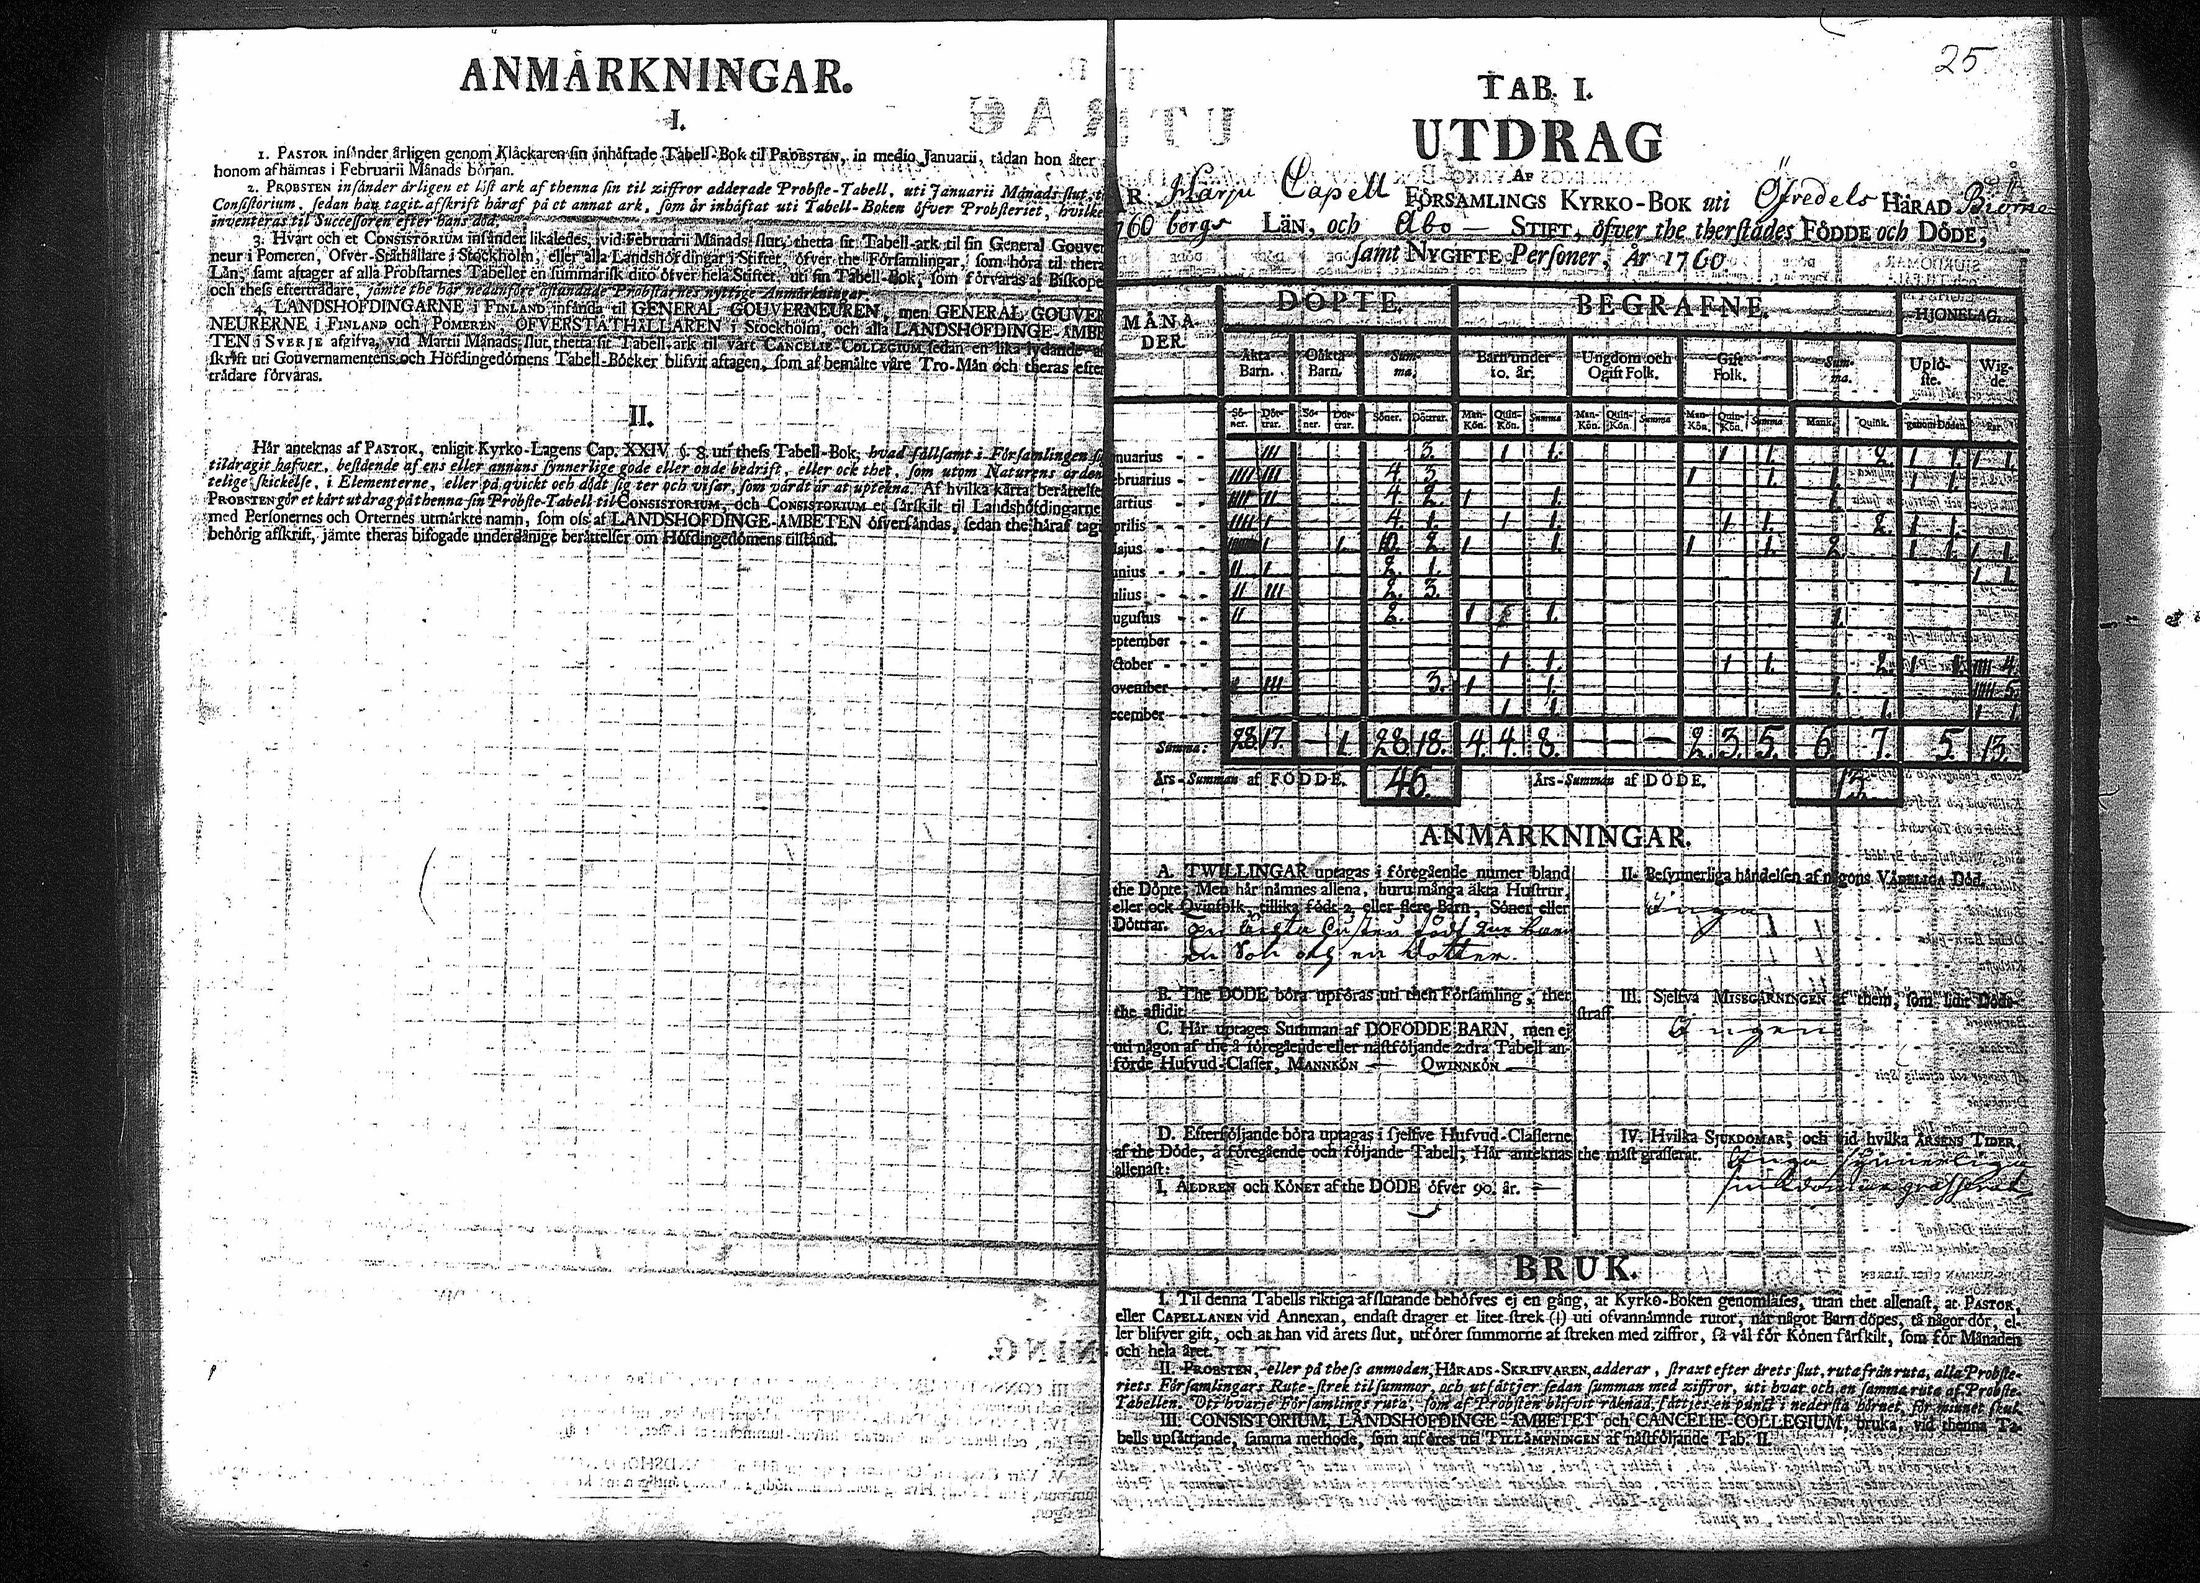 ANMÄRKNINGAR.
I.
1. PASTOR insänder årligen genom Klåckaren sin inhäftade Tabell-Bok til PROBSTEN, in medio Januarii, tådan hon åter
honom afhämtas i Februarii Månads början.
2. PROBSTEN insänder årligen et löst ark af thenna sin til ziffror adderade Probste-Tabell, uti Januarii Månads slut, ti
Consistorium, sedan han tagit afskrift häraf på et annat ark, som är inhäftat uti Tabell-Boken öfver Probsteriet, hvilke
inventeras til Successoren efter hans död.
3. Hvart och et CONSISTORIUM insänder likaledes, vid Februarii Månads slut, thetta sit Tabell-ark til sin General Gouver
neur i Pomeren, Öfver-Ståthållare i Stockholm, eller alla Landshöfdingar i Stiftet, öfver the Församlingar, som höra til thera
Län; samt aftager af alla Probstarnes Tabeller en summarisk dito öfver hela Stiftet, uti sin Tabell-Bok, som förvaras af Biskope
och thess efterträdare, jämte the här nedanföre åstundade Probstarnes nyttige Anmärkningar.
4. LANDSHÖFDINGARNE i FINLAND insända til GENERAL GOUVERNEUREN, men GENERAL GOUVER
NEURERNE i FINLAND och POMEREN, ÖFVERSTÅTHÅLLAREN i Stockholm, och alla LANDSHÖFDINGE-ÄMBE
TEN i SVERJE afgifva, vid Martii Månads slut, thetta sit Tabell-ark til vårt CANCELIE-COLLEGIUM, sedan en lika lydande af
skrift uti Gouvernamentens och Höfdingedömens Tabell-Böcker blifvit aftagen, som af bemälte våre Tro-Män och theras efter
trädare förvaras.
II.
Här anteknas af PASTOR, enligit Kyrko-Lagens Cap. XXIV. §. 8. uti thess Tabell-Bok, hvad sällsamt i Församlingen si
tildragit hafver, bestående af ens eller annans synnerlige gode eller onde bedrift, eller ock thet, som utom Naturens orden
telige skickelse, i Elementerne, eller på qvickt och dödt sig ter och visar, som värdt är at uptekna. Af hvilka kårta berättelse
PROBSTEN gör et kårt utdrag på thenna sin Probste-Tabell til CONSISTORIUM, och CONSISTORIUM et särskilt til Landshöfdingarne
med Personernes och Orternes utmärkte namn, som oss af LANDSHÖFDINGE-ÄMBETEN öfversändas, sedan the häraf tag
behörig afskrift, jämte theras bifogade underdånige berättelser om Höfdingedömens tilstånd.
25
TAB. I.
UTDRAG
AF
AR Härju Capell FÖRSAMLINGS KYRKO-BOK uti Öfredels HÄRAD Biörne
760 borgs LÄN, och Åbo — STIFT, öfver the therstädes FÖDDE och DÖDE,
samt NYGIFTE Personer, År 1760
MÅNADER. DÖPTE. BEGRAFNE. HJONELAG.
Äkta Barn. Oäkta Barn. Summa. Barn under 10. år. Ungdom och Ogift Folk. Gift Folk. Summa. Uplöste. Wigde.
Söner. Döttrar. Söner. Döttrar. Söner. Döttrar. Man-Kön. Quin-Kön. Summa Man-Kön. Quin-Kön. Summa Man-Kön. Quin-Kön. Summa Mank. Quink. genom Döden Par.
nuarius - - III 3. 1 1. 1 1. 2. 1 1. 1 1.
ebruarius - - IIII III 4. 3. 1 1. 1. 1 1.
artius - - IIII II 4. 2. 1 1. 1.
prilis - - IIII I 4. 1. 1 1. 1 1. 2. 1 1.
Majus - - I 1. 10. 2. 1 1. 1 1. 2. 1 1. 1 1.
unius - - II I 2. 1. 1 1.
ulius - - II III 2. 3.
ugustus - - II 2. 1 1. 1.
eptember - -
ctober - - 1 1. 1 1. 2. 1 1. IIII 4.
ovember - - III 3. 1 1. 1. 5.
ecember - - 1 1. 1. 1 1.
Summa: 28. 17. — 1. 28 18. 4. 4. 8. — — — 2. 3. 5. 6. 7. 5. 13.
Års-Summan af FÖDDE. 46. Års-Summan af DÖDE. 13.
ANMÄRKNINGAR.
A. TWILLINGAR uptagas i föregående numer bland
the Döpte; Men här nämnes allena, huru många äkta Hustrur,
eller ock Qvinfolk, tillika födt 2. eller flere Barn, Söner eller
Döttrar. En Ächta Hustru födt 2ne barn
En Son och en Dotter.
B. The DÖDE böra upföras uti then Församling, ther
the aflidit.
C. Här uptages Summan af DÖFÖDDE BARN, men ej
uti någon af the å föregående eller nästföljande 2dra Tabell an-
förde Hufvud-Classer, MANNKÖN — QWINNKÖN —
D. Efterföljande böra uptagas i sjelfve Hufvud-Classerne
af the Döde, å föregående och följande Tabell; Här anteknas
allenast:
I. ÅLDREN och KÖNET af the DÖDE öfver 90. år. -
II. Besynnerliga händelsen af någons VÅDELIGA Död.
Inga
III. Sjelfva MISSGÄRNINGEN af them, som lidit Döds-
straff.
Ingen
IV. Hvilka SJUKDOMAR, och vid hvilka ÅRSENS TIDER,
the mäst grasserat. Inga synnerliga
siukdomar grasserat
BRUK.
I. Til denna Tabells riktiga afslutande behöfves ej en gång, at Kyrko-Boken genomläses, utan thet allenast, at PASTOR,
eller CAPELLANEN vid Annexan, endast drager et litet strek (I) uti ofvannämnde rutor, när något Barn döpes, tå någor dör, el-
ler blifver gift, och at han vid årets slut, utförer summorne af streken med ziffror, så väl för Könen färskilt, som för Månaden
och hela året.
II. PROBSTEN, eller på thess anmodan, HÄRADS-SKRIFVAREN, adderar, straxt efter årets slut, ruta från ruta, alla Probste-
riets Församlingars Rute-strek til summor, och utsättjer sedan summan med ziffror, uti hvar och en samma ruta af Probste-
Tabellen. Uti hvarje Församlings ruta, som af Probsten blifvit räknad, sättjes en punkt i nedersta hörnet, för minnet skul.
III. CONSISTORIUM, LANDSHÖFDINGE-ÄMBETET och CANCELIE-COLLEGIUM, bruka, vid thenna Ta-
bells upsättjande, samma methode, som anföres uti TILLÄMPNINGEN af nästföljande Tab. II.